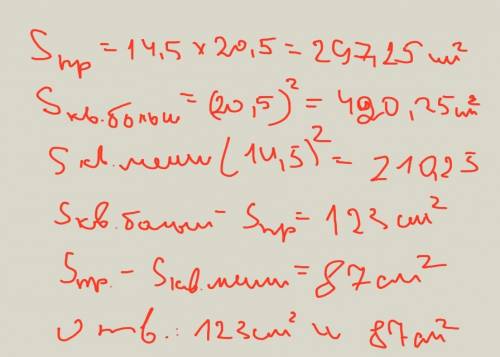 Sпр = 14,5 × 20,5 = 297,25 см²
Sкв.больш = (20,5)² = 420,25 см²
Sкв.менш (14,5)² = 210,25
Sкв.больш - Sпр = 123 см²
Sпр. - Sкв.менш = 87 см²
Отв.: 123 см² и 87 см²